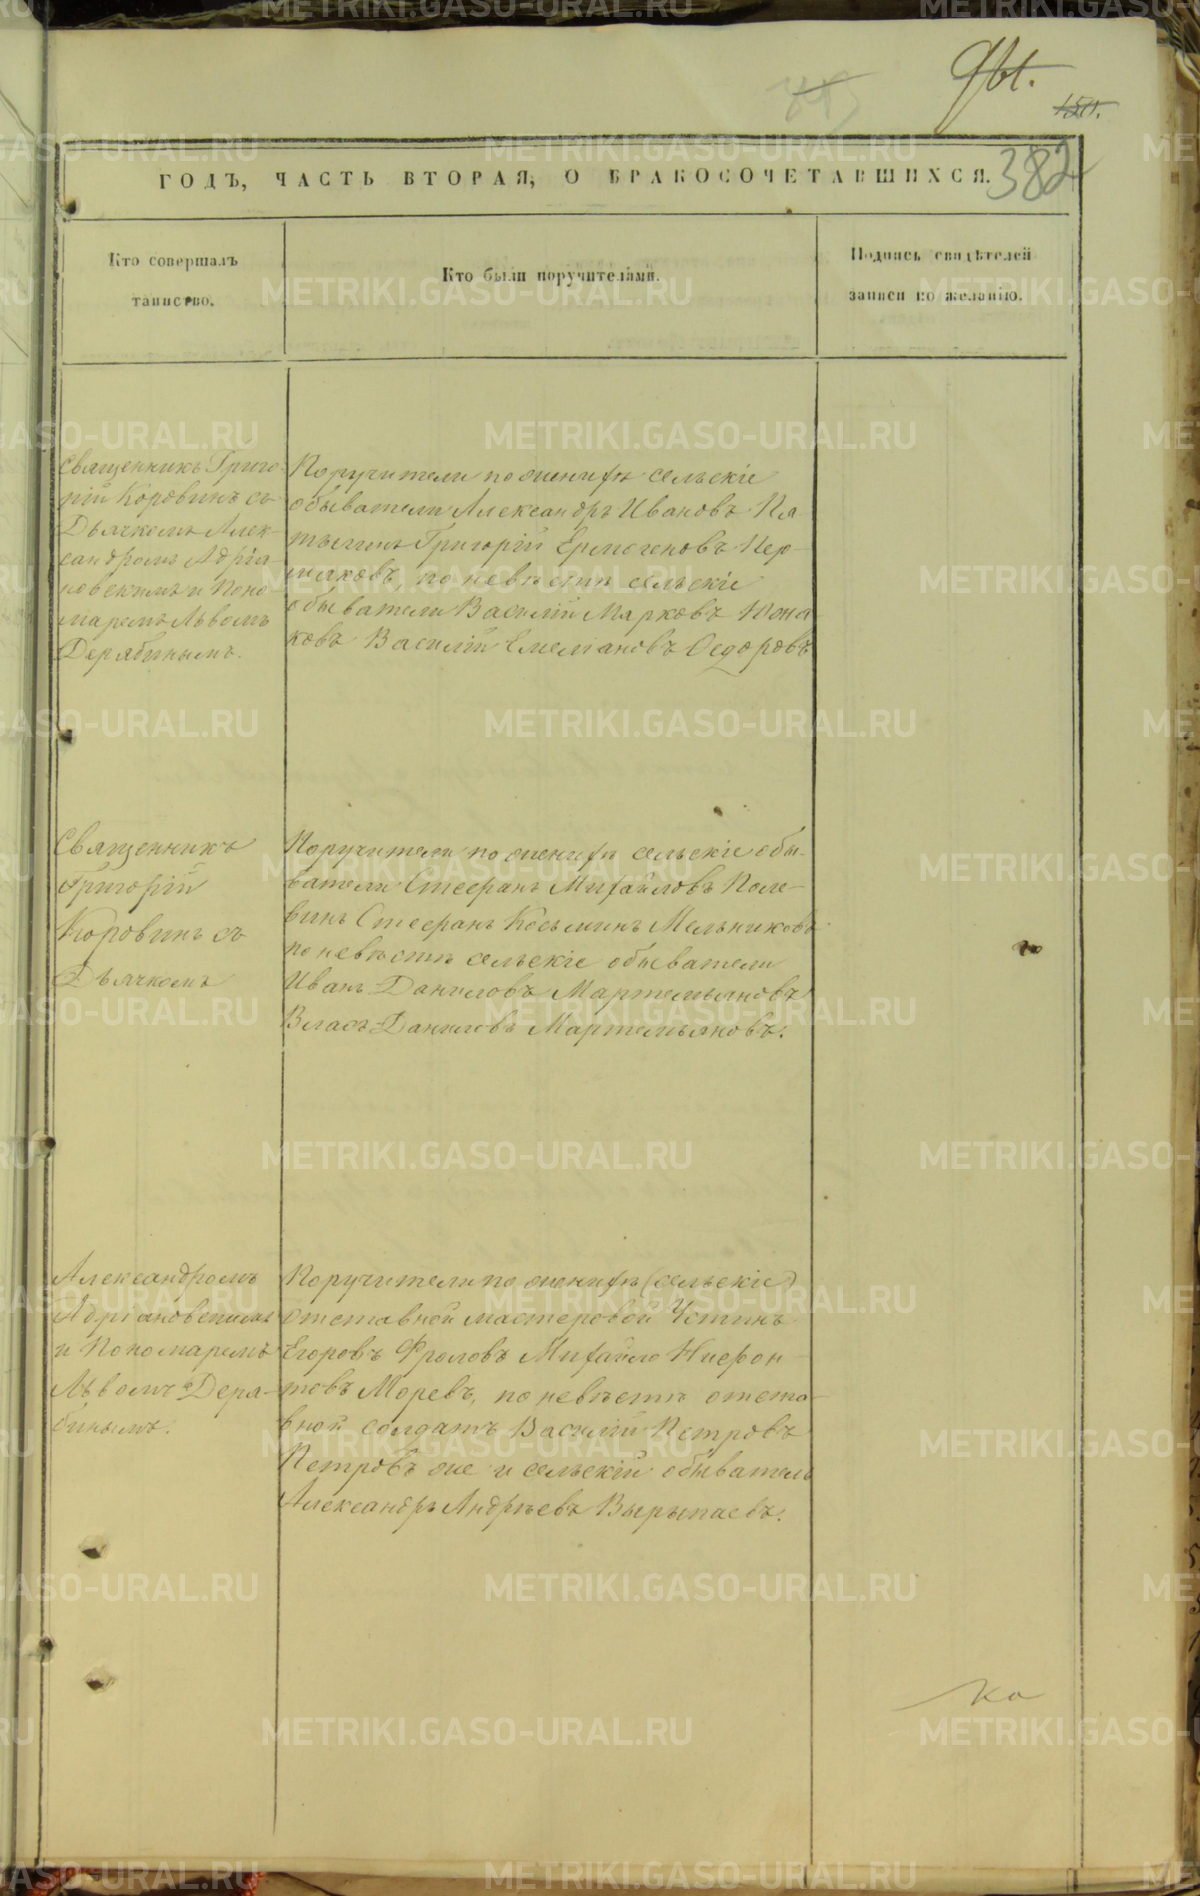 382
ГОДЪ, ЧАСТЬ ВТОРАЯ, О БРАКОСОЧЕТАВШИХСЯ.
Кто совершалъ
таинство.
Кто были поручителями.
Подпись свидѣтелей
записи по желанію.
Священникъ Григо-
рій Коровинъ съ
Дьячкомъ Алек-
сандромъ Адріа-
новскимъ и Поно-
маремъ Львомъ
Дерябинымъ.
Поручители по женихѣ сельскіе
обыватели Александръ Ивановъ Па-
Григорій Ермогеновъ Пер-
мяковъ, по невѣстѣ сельскіе
обыватели Василій Марковъ Кона-
ковъ Василій Емеліановъ Ѳедоровъ
Священникъ
Григорій
Коровинъ съ
Дьячкомъ
Поручители по женихѣ сельскіе обы-
ватели Стефанъ Михайловъ Поле-
винъ Стефанъ Козьминъ Мельниковъ
по невѣстѣ сельскіе обыватели
Иванъ Даниловъ Мартемьяновъ
Власъ Даниловъ Мартемьяновъ.
Александромъ
Адріановскимъ
и Пономаремъ
Львомъ Деря-
бинымъ.
Поручители по женихѣ (сельскіе)
отставной мастеровой Устинъ
Егоровъ Фроловъ Михайло Ниефон-
товъ Моревъ, по невѣстѣ отста-
вной солдатъ Василій Петровъ
Петровъ же и сельскій обыватель
Александръ Андреевъ Вырыпаевъ.
ко
METRIKI.GASO-URAL.RU